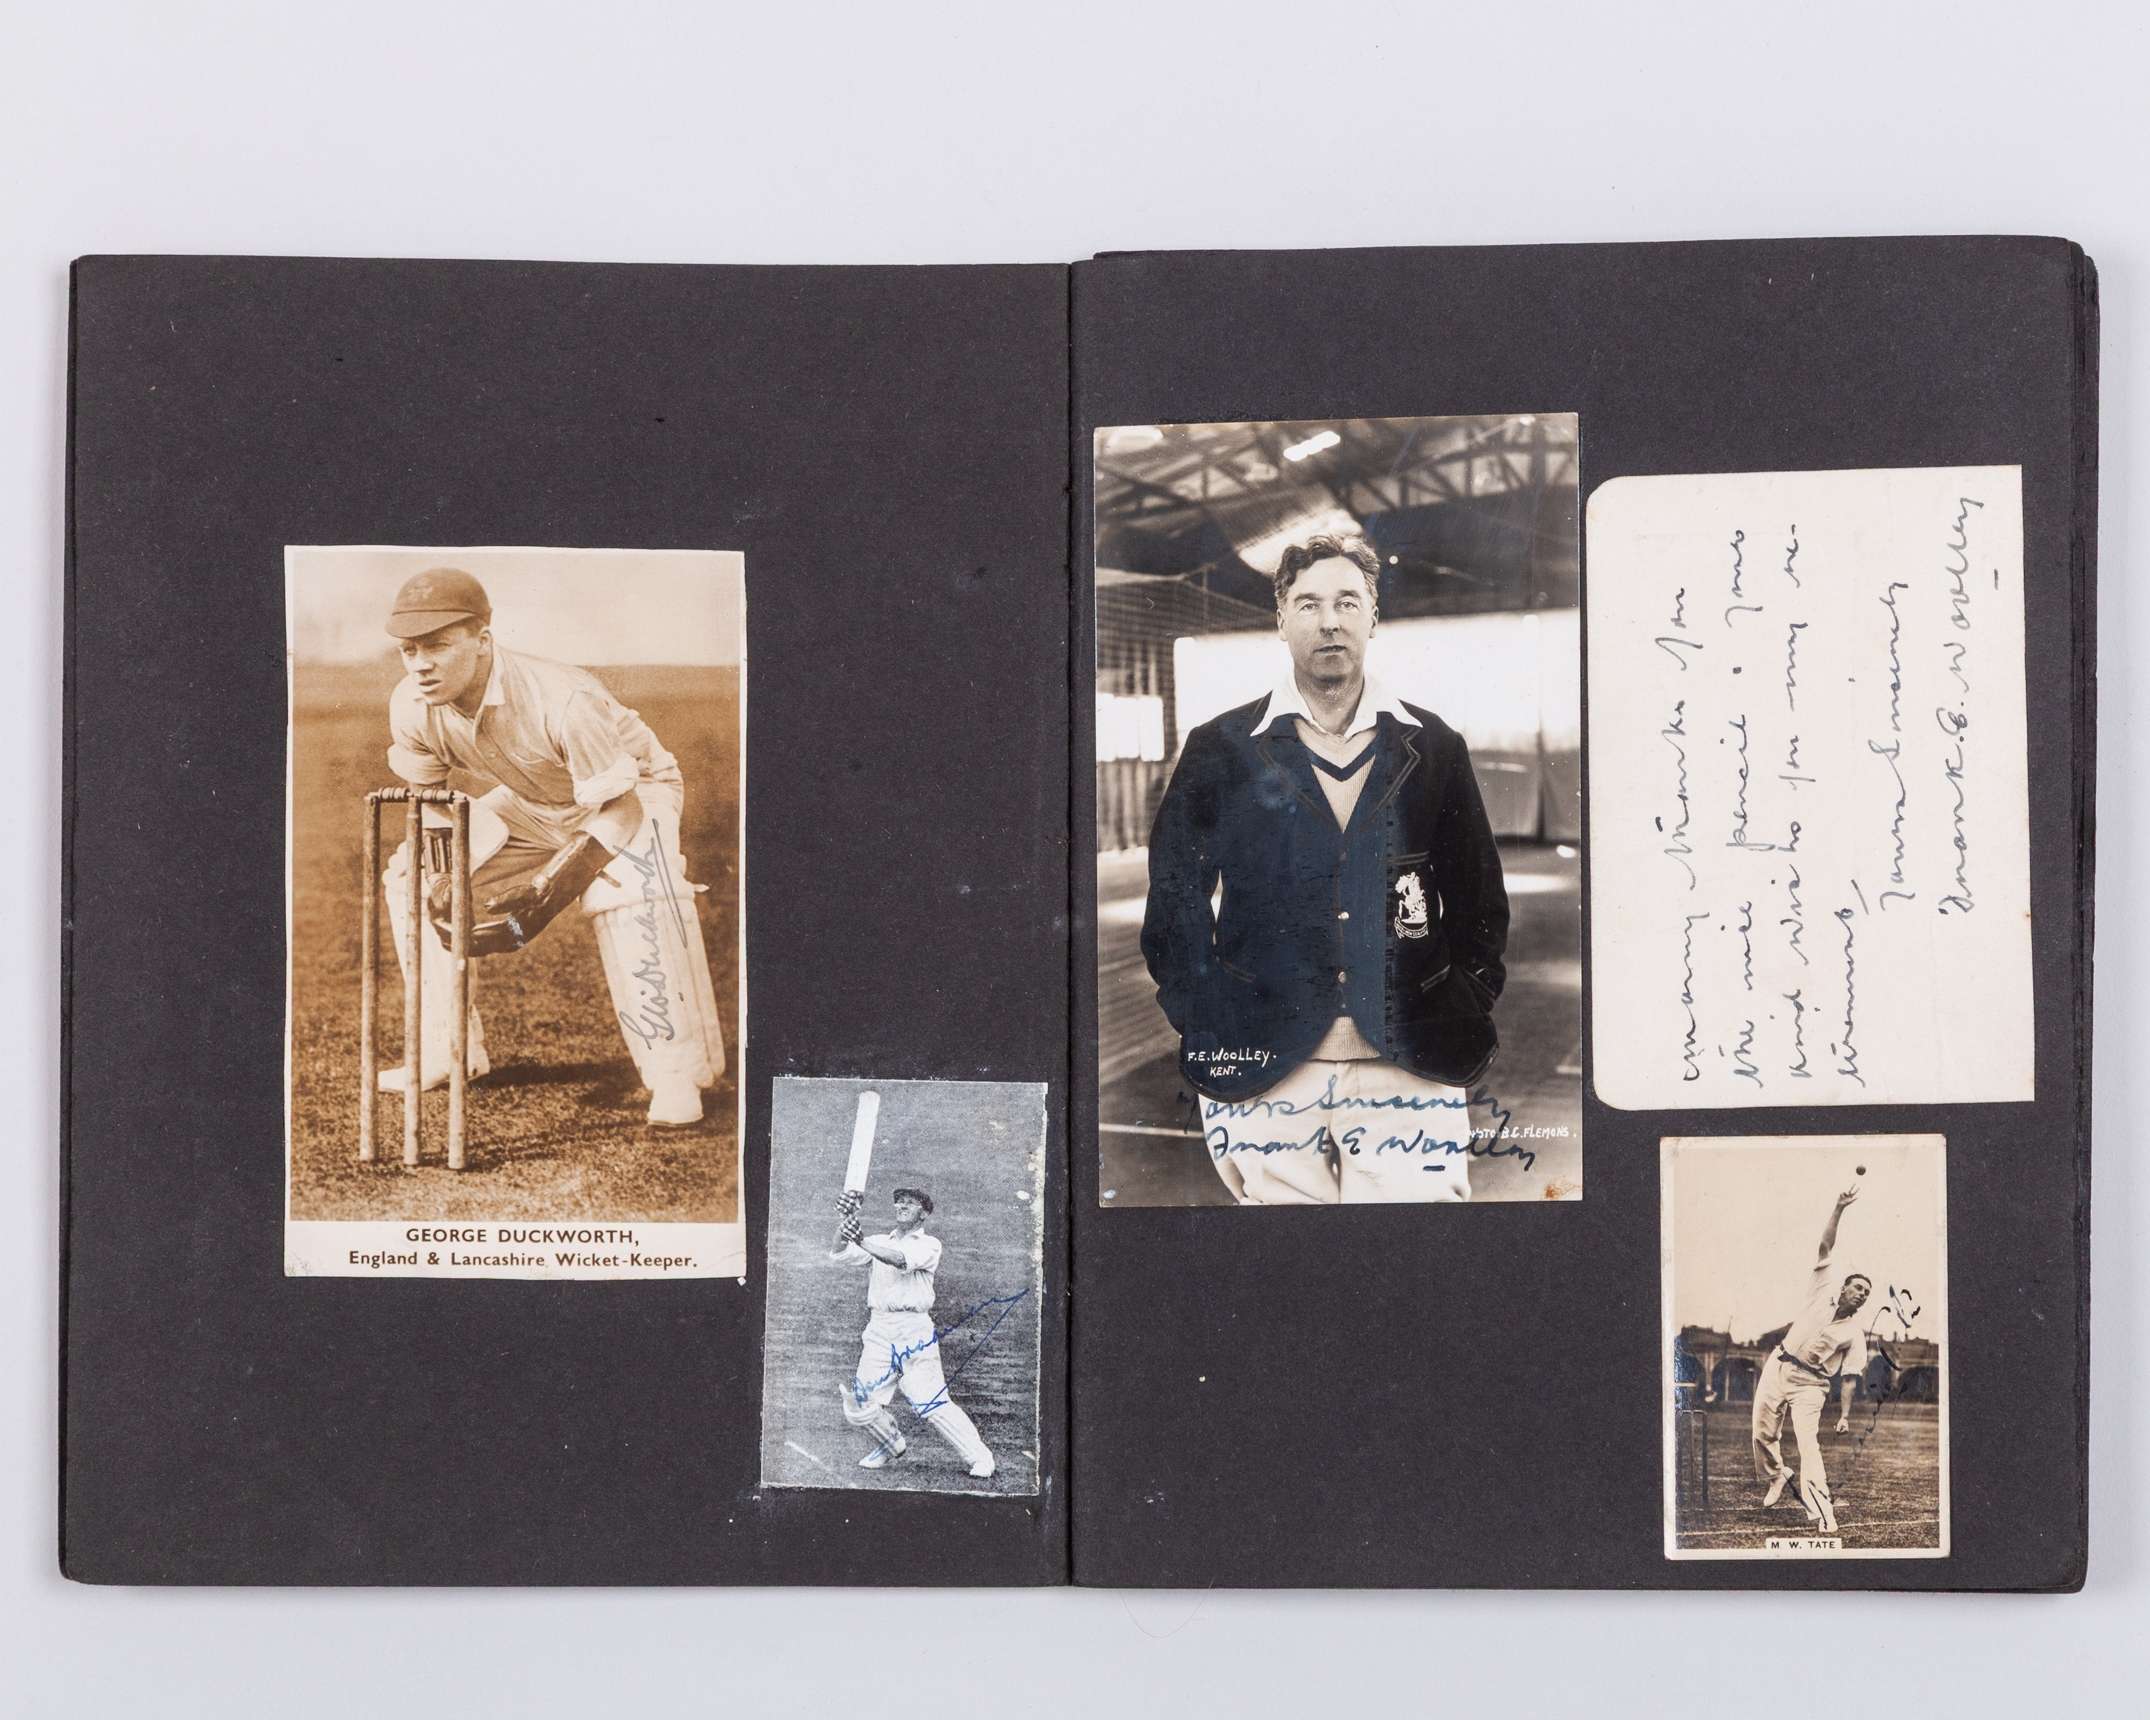 Geo. Duckworth
GEORGE DUCKWORTH,
England & Lancashire Wicket-Keeper.
Don Bradman
F.E. WOOLLEY.
KENT.
Yours Sincerely
Frank E Woolley
PHOTO B.C. FLEMONS.
Many Thanks for
the nice pencil & your
kind wish to for my re-
tirement
Yours Sincerely
Frank. E. Woolley
Maurice Tate
M. W. TATE